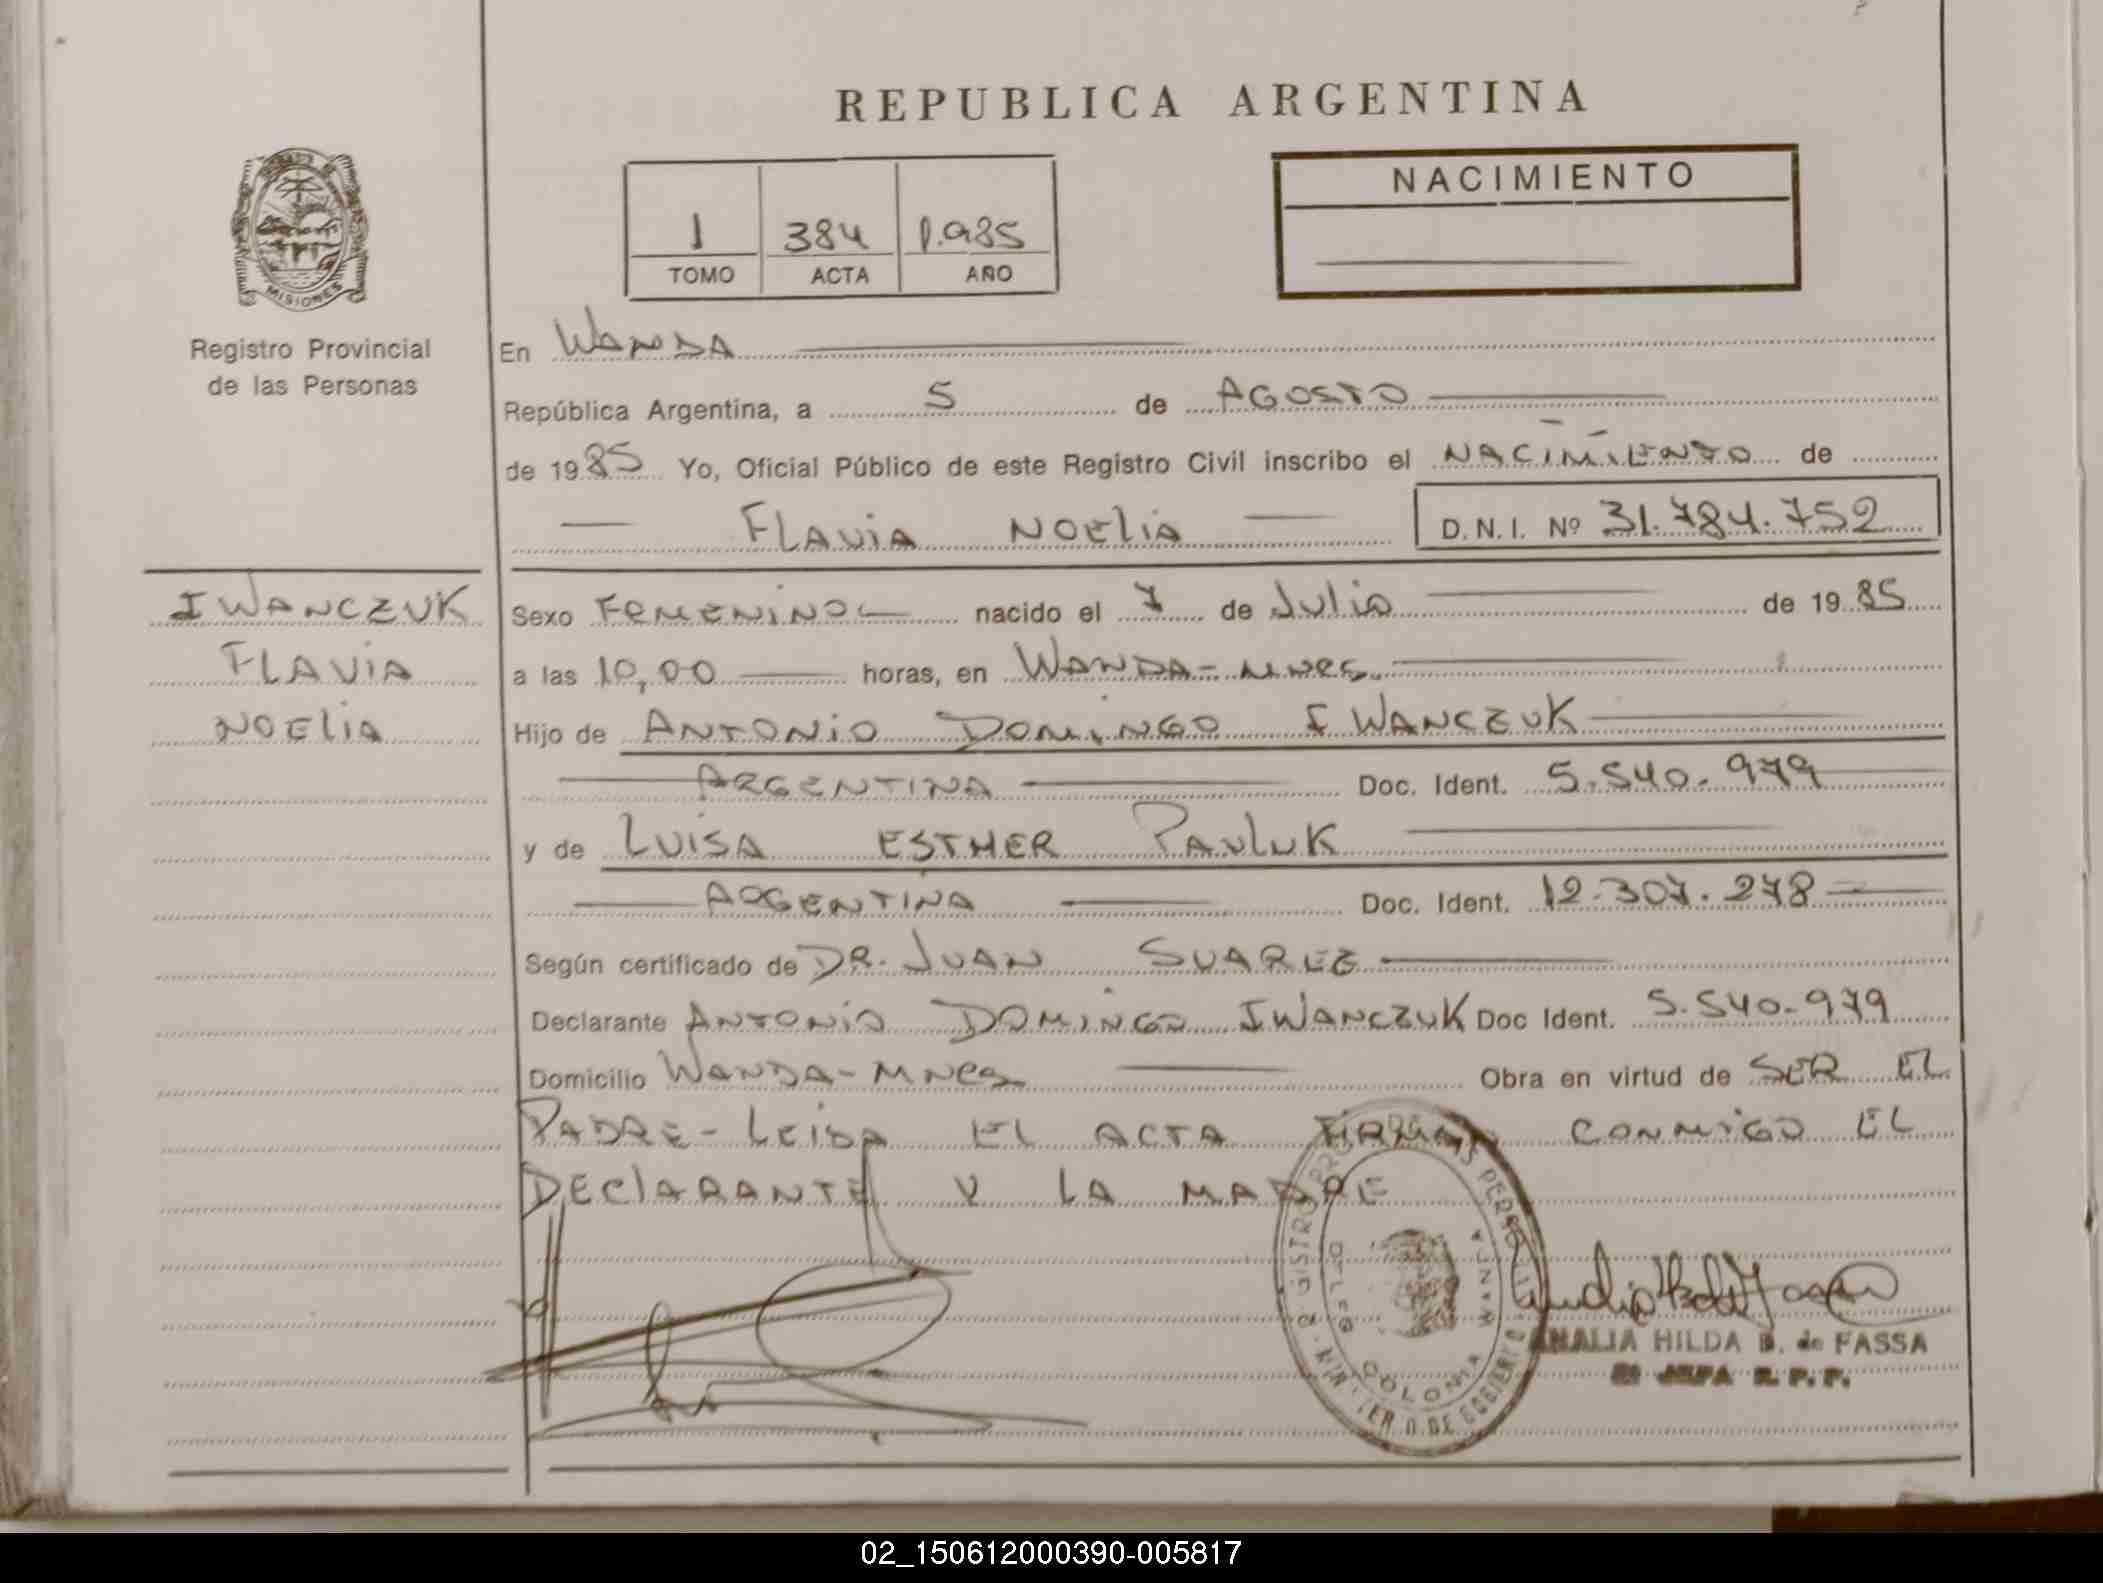 REPUBLICA ARGENTINA
MISIONES
Registro Provincial
de las Personas
1 384 1.985
TOMO ACTA AÑO
NACIMIENTO
En WANDA
República Argentina, a 5 de AGOSTO
de 1985 Yo, Oficial Público de este Registro Civil inscribo el NACIMIENTO de
FLAVIA NOELIA D.N.I. Nº 31.784.752
IWANCZUK
FLAVIA
NOELIA
Sexo FEMENINO nacido el 7 de JULIO de 1985
a las 10,00 horas, en WANDA-MNES.
Hijo de ANTONIO DOMINGO IWANCZUK
ARGENTINA Doc. Ident. 5.540.979
y de LUISA ESTHER PAULUK
ARGENTINA Doc. Ident. 12.307.278
Según certificado de DR. JUAN SUAREZ
Declarante ANTONIO DOMINGO IWANCZUK Doc Ident. 5.540.979
Domicilio WANDA-MNES Obra en virtud de SER EL
PADRE-LEIDA EL ACTA FIRMAN CONMIGO EL
DECLARANTE Y LA MADRE
COLONIA WANDA
ANALIA HILDA B. de FASSA
JEFA R.P.P.
02_150612000390-005817